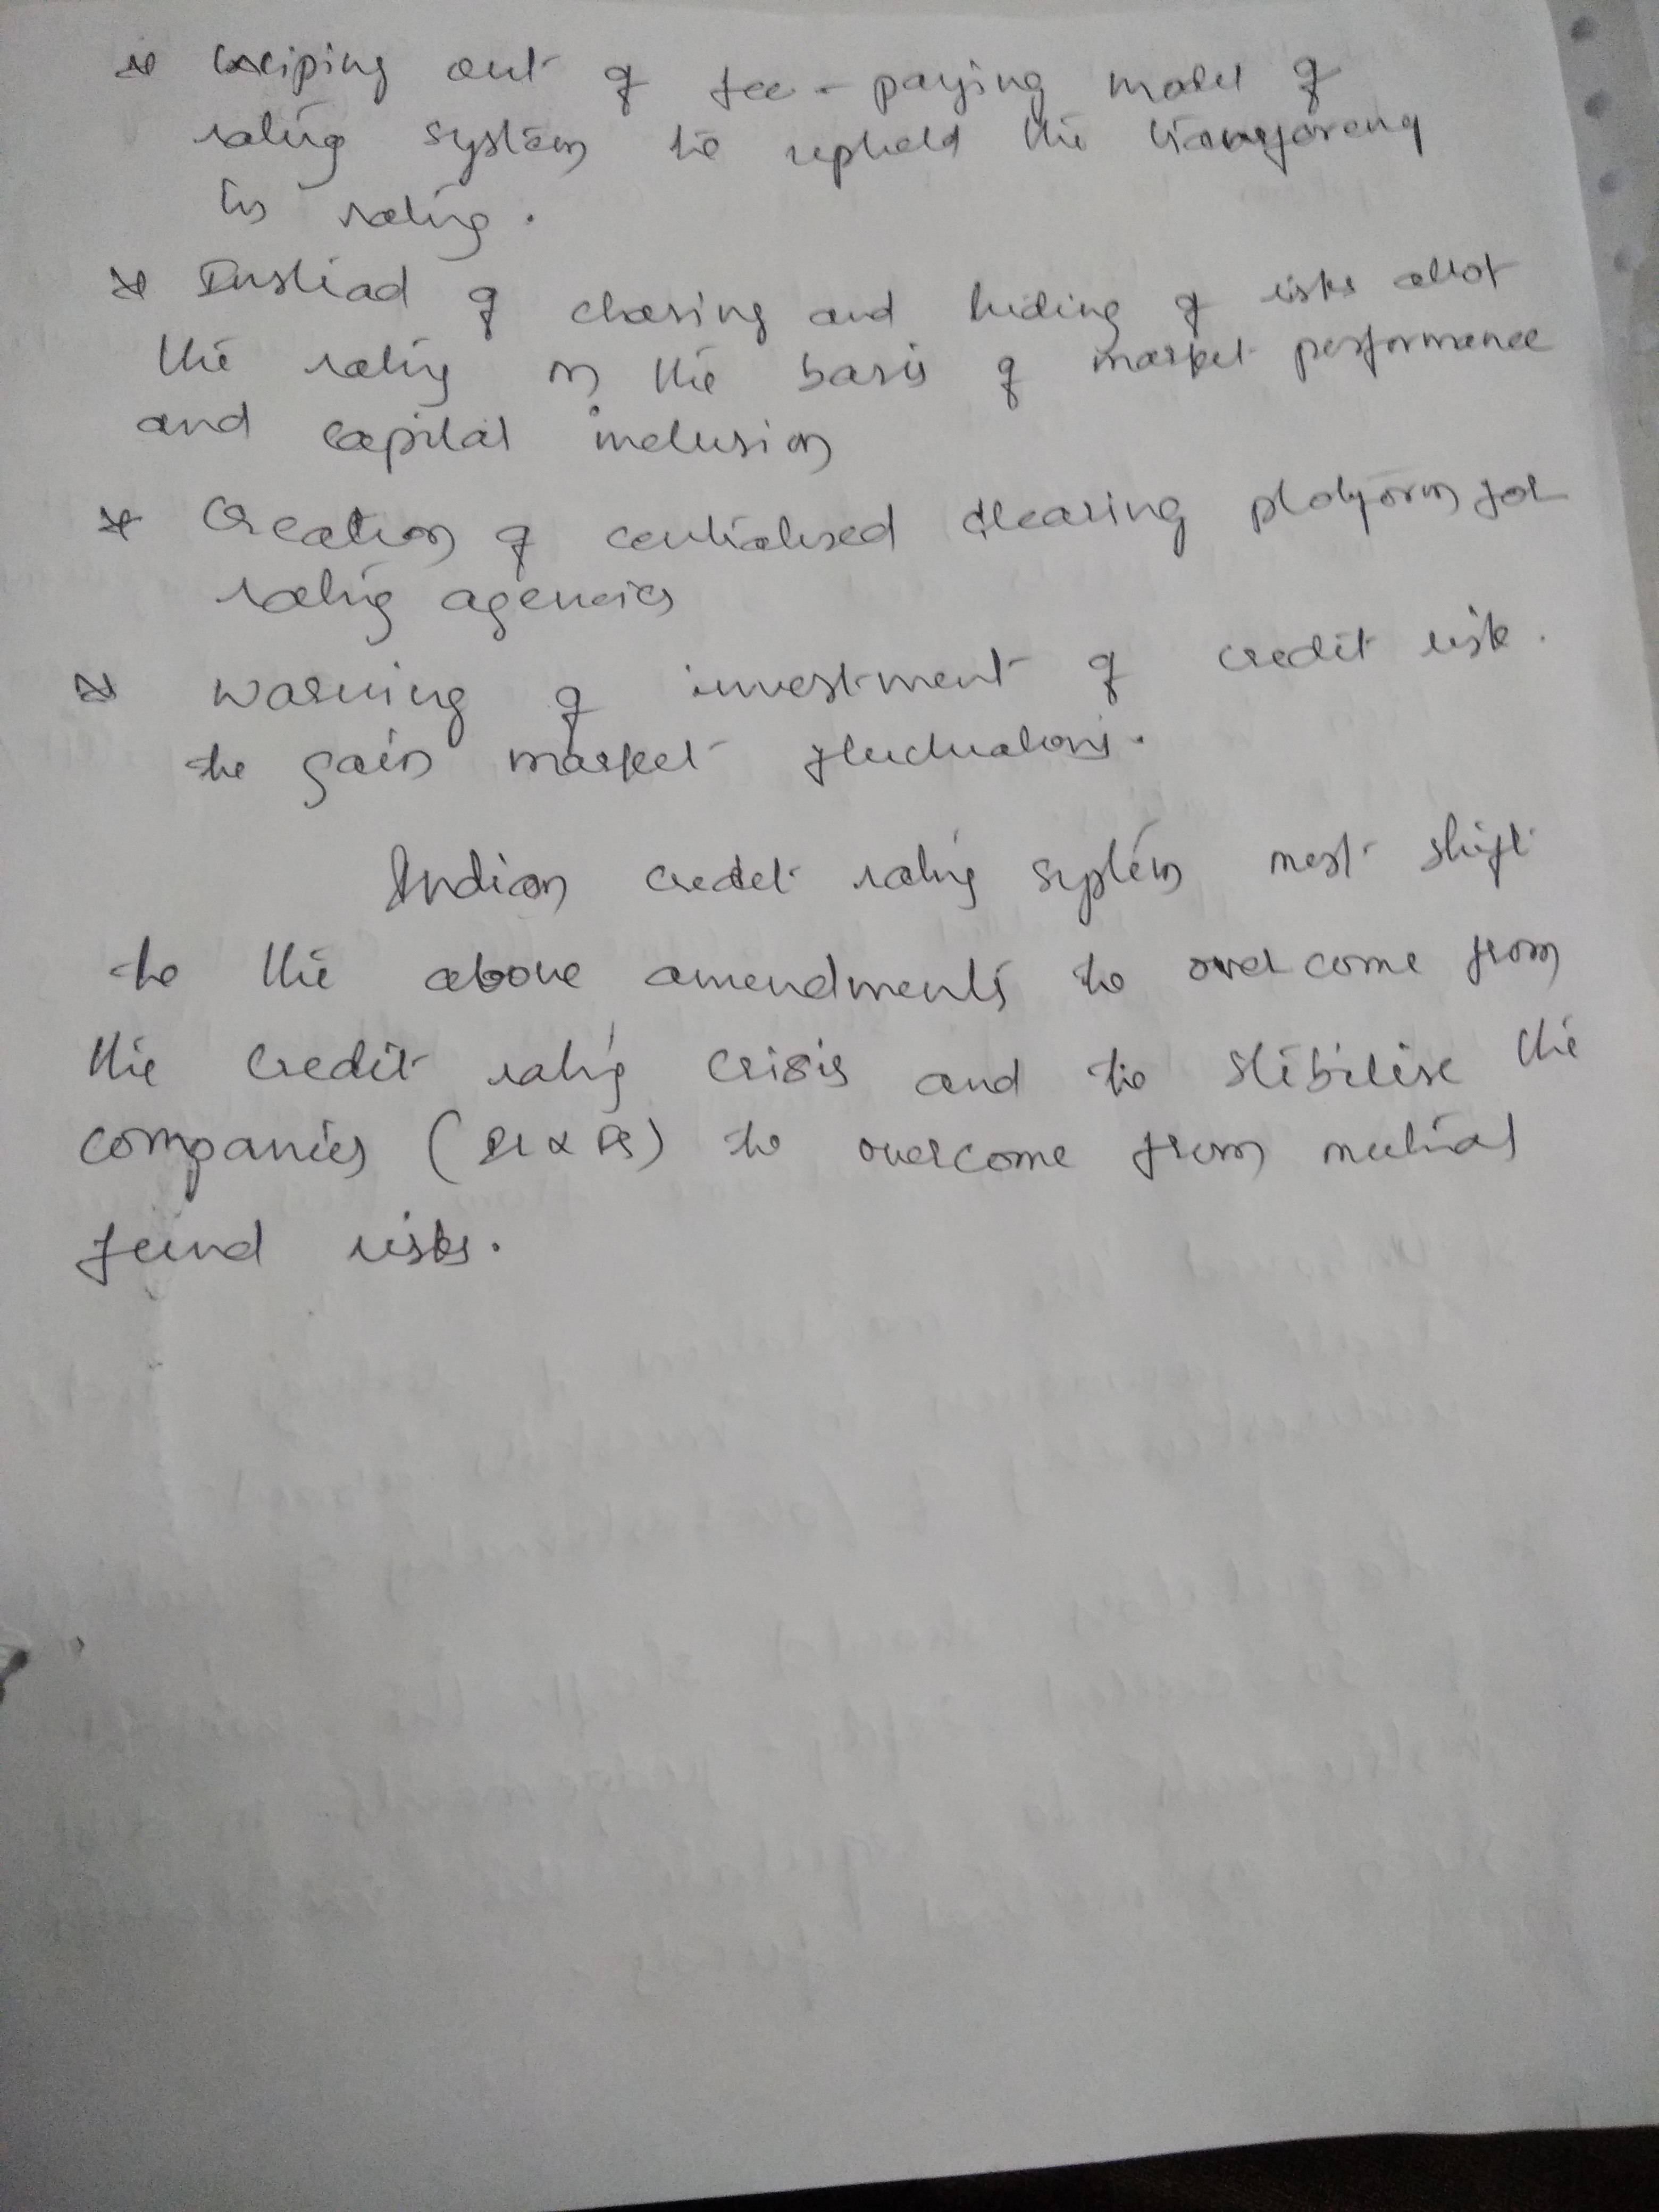 * Weiping out of fee - paying model of
rating system to uphold the transparency
in rating.
* Instead of chasing and hiding of risks allot
the rating on the basis of market performance
and capital inclusion
* Creation of centralised clearing platform for
rating agencies
* Warning of investment of credit risk.
to gain market fluctuations.
Indian credit rating system must shift
to the above amendments to over come from
the credit rating crisis and to stibilise the
companies ( ) to overcome from mutual
fund risks.